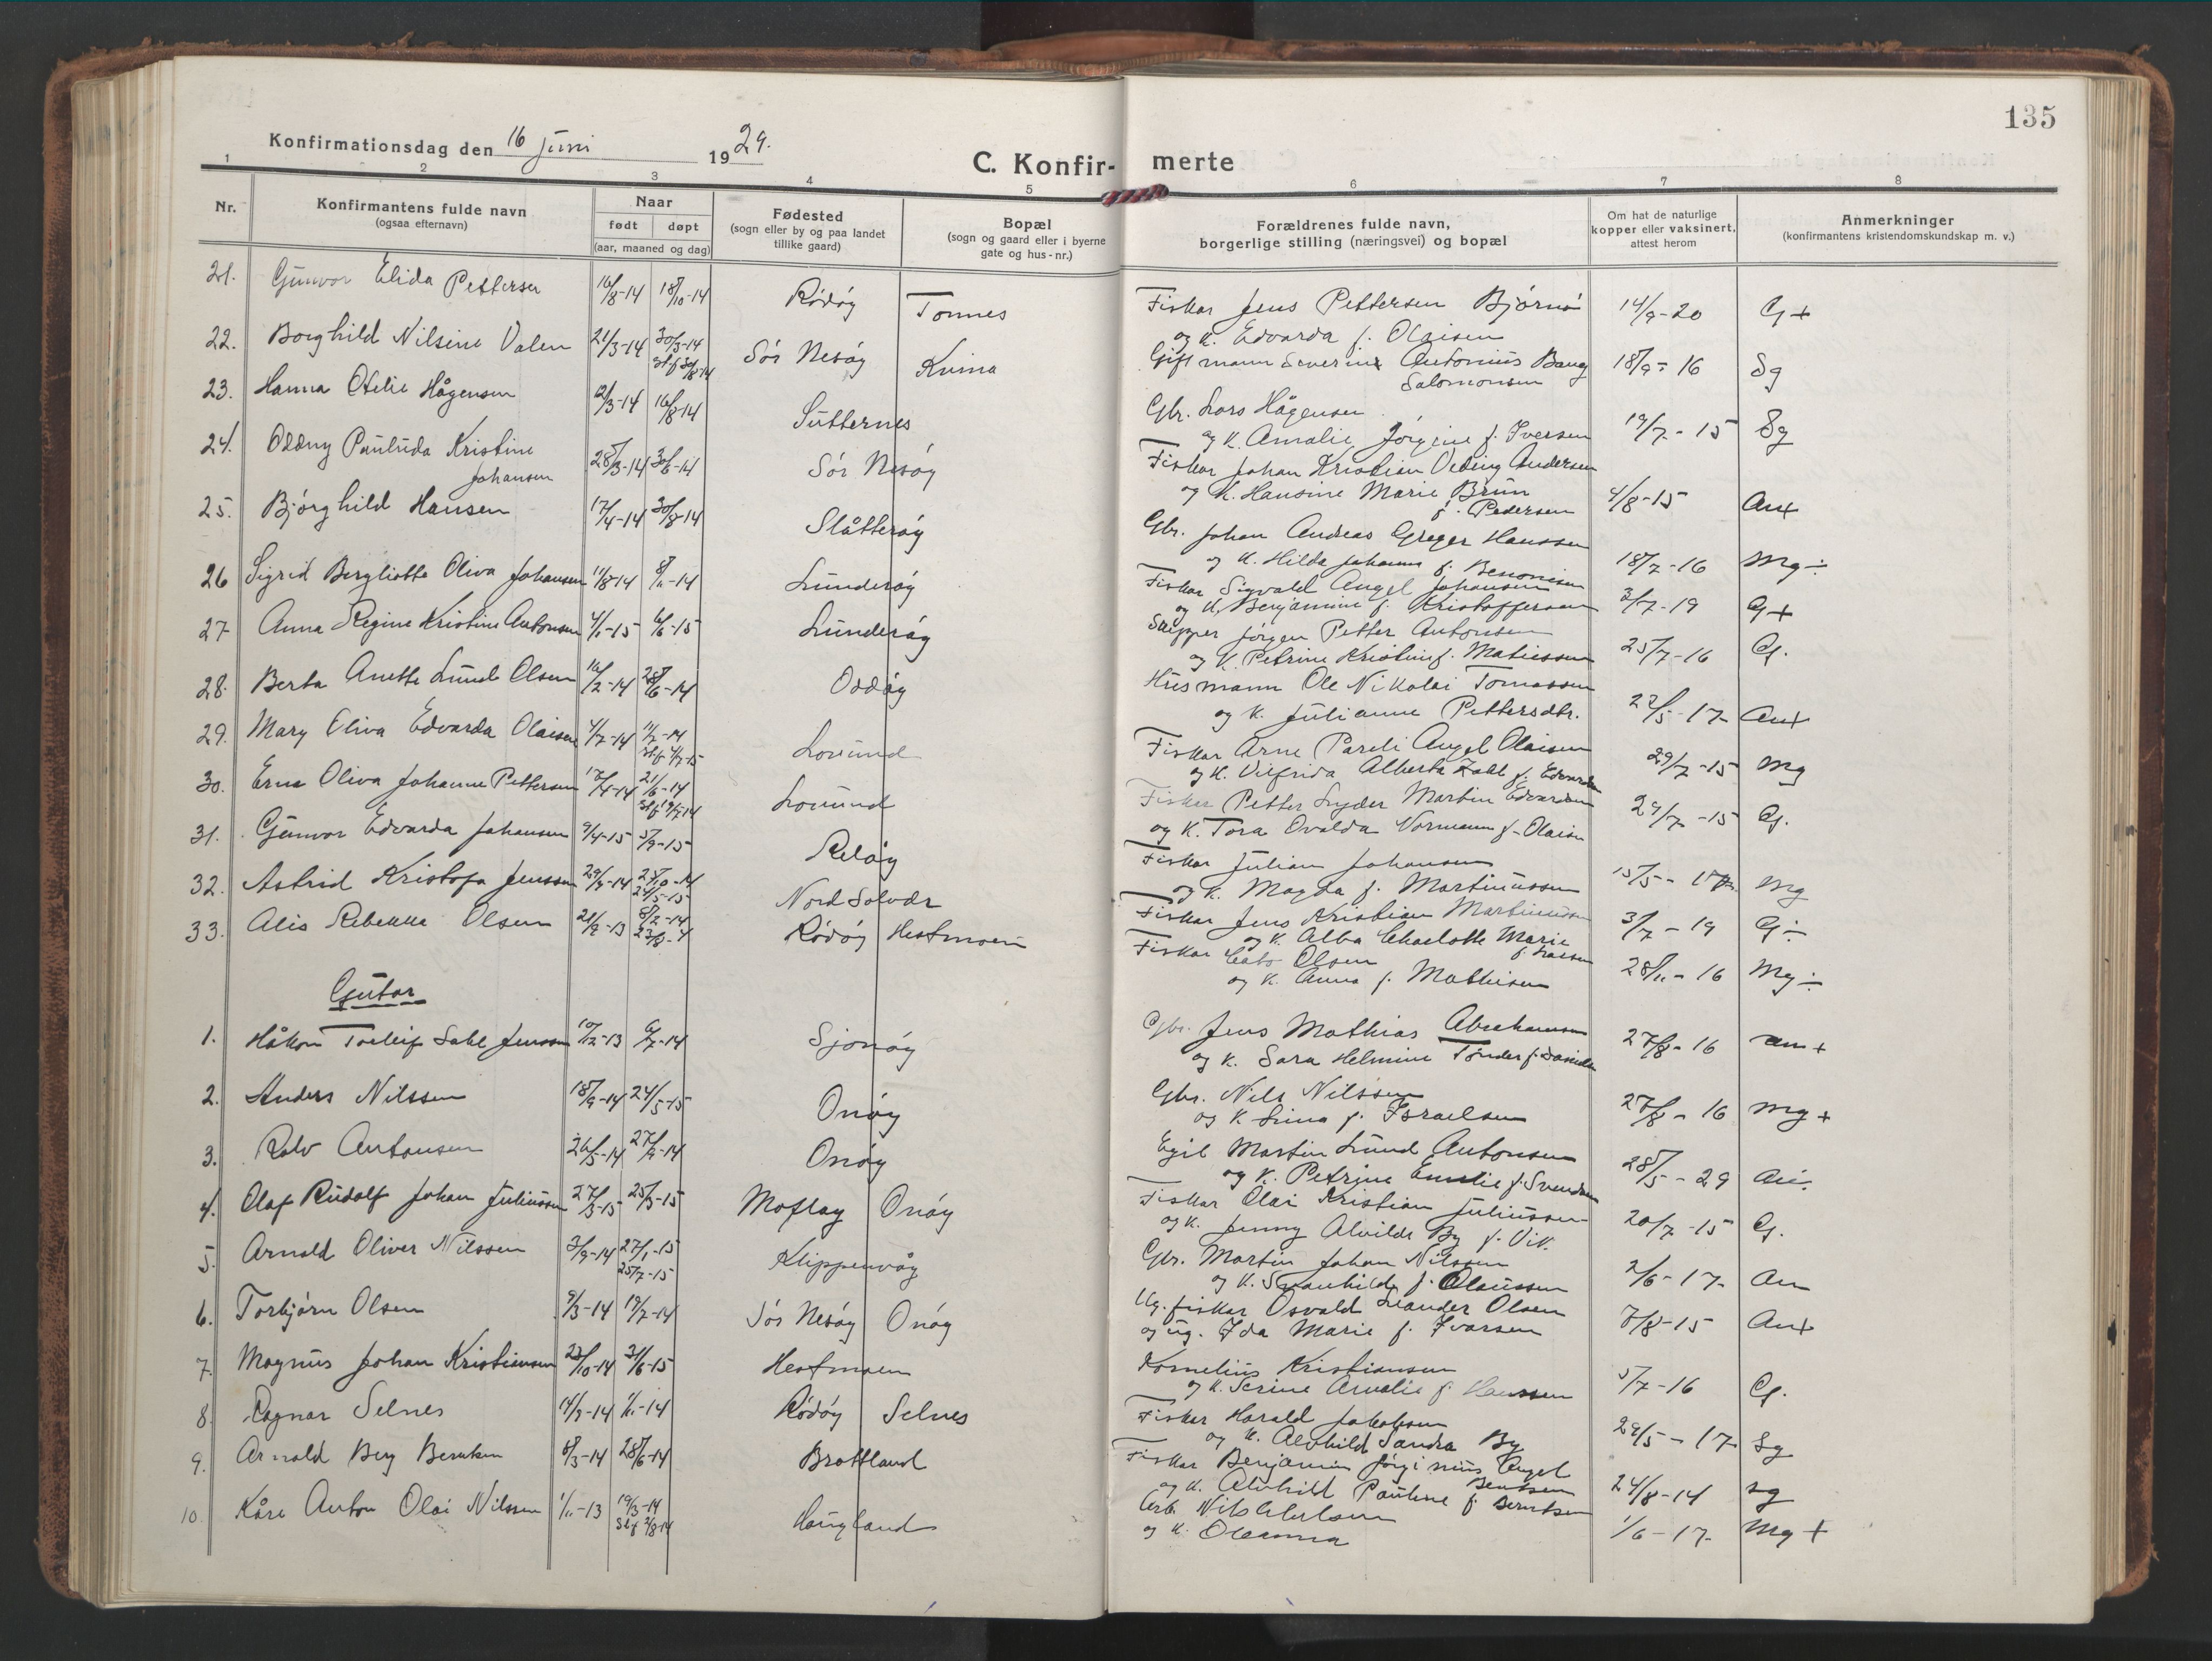 135
Konfirmationsdag den 16 juni 1929.
C. Konfirmerte
1 2 3 4 5 6 7 8
Nr.
Konfirmantens fulde navn
(ogsaa efternavn)
Naar
født døpt
(aar, maaned og dag)
Fødested
(sogn eller by og paa landet
tillike gaard)
Bopæl
(sogn og gaard eller i byerne
gate og hus-nr.)
Forældrenes fulde navn,
borgerlige stilling (næringsvei) og bopæl
Om hat de naturlige
kopper eller vaksinert,
attest herom
Anmerkninger
(konfirmantens kristendomskundskap m. v.)
21. Gunvor Elida Pettersen 16/8-14 18/10-14 Rødøy Tonnes Fiskar Jens Pettersen Bjørnø 14/9-20 G+
og K. Edvarda f. Olaisen
22. Borghild Nilsine Valen 21/3-14 30/3-14 Sør Nesøy Kvina Gift mann Severin Antonius Bang 18/9-16 Sg
Salomonsen
23. Hanna Otelie Hågensen 12/3-14 16/8-14 Sutternes Gbr. Lars Hågensen 19/7-15 Sg
og K. Amalie Jørgine f. Iversen
24. Oddny Paulida Kristine 28/3-14 30/6-14 Sør Nesøy Fiskar Johan Kristian Veding Andersen 4/8-15
Johansen og K. Hansine Marie Brun
f. Pedersen
25. Bjørghild Hansen 17/4-14 30/8-14 Slåtterøy Gbr. Johan Andreas Greger Hanssen 18/7-16 Mg÷
og K. Hilda Johanna f. Benonisen
26 Sigrid Bergliotte Oliva Johansen 11/8-14 8/11-14 Lunderøy Fiskar Sigvald Angel Johansen 3/7-19 G+
og K. Benjamine f. Kristoffersen
27 Anna Regine Kristine Antonsen 4/1-15 6/6-15 Lunderøy Skipper Jørgen Petter Antonsen 25/7-16 G.
og K. Petrine Kristine f. Matiessen
28. Berta Anette Lund Olsen 16/2-14 28/6-14 Oddøy Husmann Ole Nikolai Tomassen 22/5-17
og K. Julianne Pettersdtr.
29. Mary Oliva Edvarda Olaisen 4/7-14 Lovund Fiskar Arne Pareli Angel Olaisen 29/7-15 Mg
og K. Vilfrida Alberta Zahl f. Edvardsen
30. Erna Oliva Johanne Pettersen 17/4-14 21/6-14 Lovund Fisker Petter Lyder Martin Edvardsen 29/7-15 G.
og K. Tora Ovalda Normann f. Olaisen
31. Gunvor Edvarda Johansen 9/4-15 5/9-15 Reløy Fiskar Julian Johansen Mg
og K. Magda f. Martinussen
32. Astrid Kristofa Jenssen 29/9-14 25/10-14 Nord Solvær Fiskar Jens Kristian Martinussen 3/7-19 G÷
24/5-15 og K. Alba Charlotte Marie
f. Larsen
33. Alis Rebekka Olsen 21/12-13 8/2-14 Rødøy Hestmoen Fiskar Olsen 28/11-16 Mg÷
og K. Anna f. Mathisen
Gutar
1. Håkon Torleif Dahl Jenssen 10/12-13 6/7-14 Sjonøy Gbr. Jens Mathias Abrahamsen 27/8-16 am+
og K. Sara Helmine Tønder f. Danielsen
2. Anders Nilssen 18/9-14 24/5-15 Onøy Gbr. Nils Nilssen 27/8-16 Mg+
og K Lina f. Israelsen
3. Rolv Antonsen 26/5-14 27/9-14 Onøy Egil Martin Lund Antonsen 28/5-29
og K. Petrine Emelie f. Svendsen
4. Olaf Rudolf Johan Juliussen 27/3-15 25/5-15 Moflag Onøy Fiskar Olai Kristian Juliussen 20/7-15 G.
og K. Jenny Alvilde By f. Vik.
5. Arnold Oliver Nilssen 3/9-14 27/1-15 Klippenvåg Gbr. Martin Johan Nilssen 2/6-17 Am
25/7-15 og K. Svanhilda f. Olaussen
6. Torbjørn Olsen 9/3-14 19/7-14 Sør Nesøy Onøy Ug. fiskar Osvald Leander Olsen 7/8-15
og ug. Ida Marie f. Ivarsen
7. Magnus Johan Kristiansen 23/10-14 3/6-15 Hestmoen Kornelius Kristiansen 5/7-16 G.
og K. Serine Amalie f. Hanssen
8. Ragnar Selnes 14/9-14 1/11-14 Rødøy Selnes Fisker Harald Jakobsen 29/5-17 Sg
og K. Alvhild Sandra By
9. Arnold Berg Berntsen 8/3-14 28/6-14 Brattland Fiskar Benjamin Jørginus Angel 24/8-14 sg
Bentsen
og K. Alvhild Pauline f. Berntsen
10. Kåre Anton Olai Nilssen 1/11-13 19/3-14 Haugland Arb. Nils 1/6-17 Mg+
Stf 2/8-14 og K. Oleanna